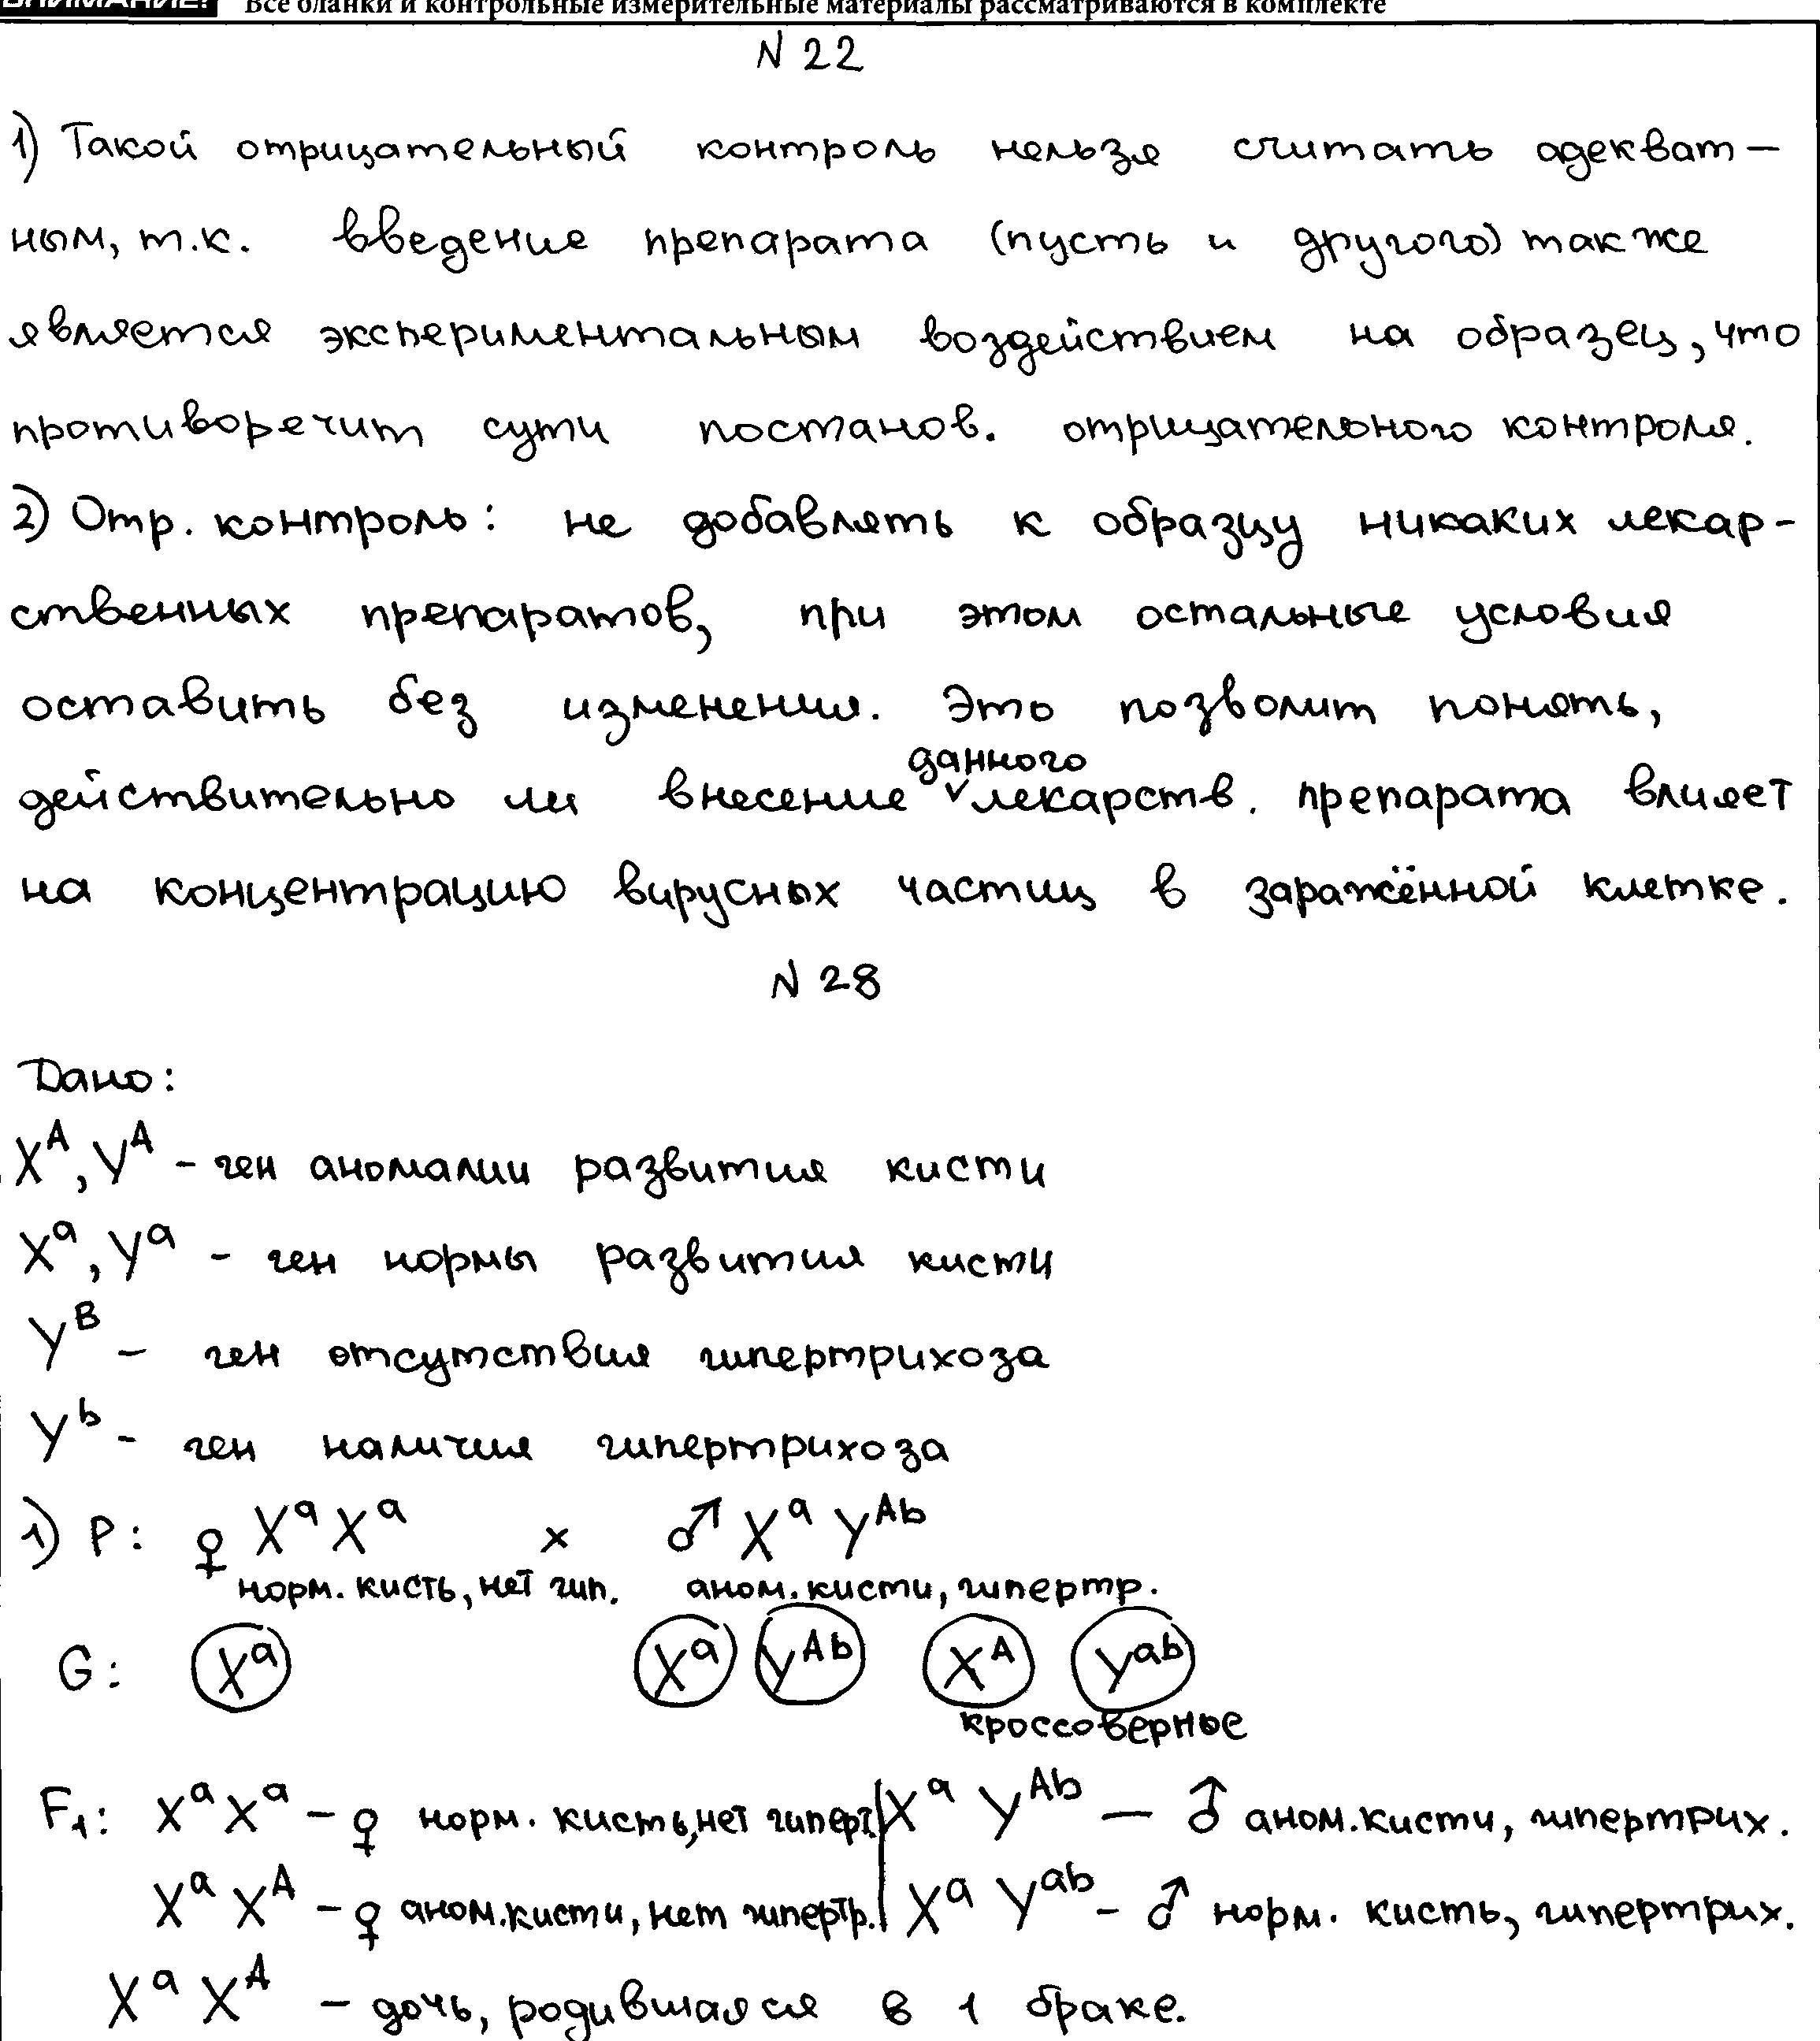 ВНИМАНИЕ! Все бланки и контрольные измерительные материалы рассматриваются в комплекте
N 22
1) Такой отрицательный контроль нельзя считать адекват-
ным, т.к. введение препарата (пусть и другого) также
является экспериментальным воздействием на образец, что
противоречит сути постанов. отрицательного контроля.
2) Отр. контроль: не добавлять к образцу никаких лекар-
ственных препаратов, при этом остальные условия
оставить без изменения. Это позволит понять,
действительно ли внесение данного лекарств. препарата влияет
на концентрацию вирусных частиц в заражённой клетке.
N 28
Дано:
X^A, Y^A - ген аномалии развития кисти
X^a, Y^a - ген нормы развития кисти
Y^B - ген отсутствия гипертрихоза
Y^b - ген наличия гипертрихоза
1) P: ♀ X^a X^a × ♂ X^a Y^Ab
норм. кисть, нет гип. аном. кисти, гипертр.
G: X^a X^a Y^Ab X^A Y^ab
кроссоверные
F1: X^a X^a - ♀ норм. кисть, нет гиперт. | X^a Y^Ab — ♂ аном. кисти, гипертрих.
X^a X^A - ♀ аном. кисти, нет гипертр. | X^a Y^ab - ♂ норм. кисть, гипертрих.
X^a X^A - дочь, родившаяся в 1 браке.